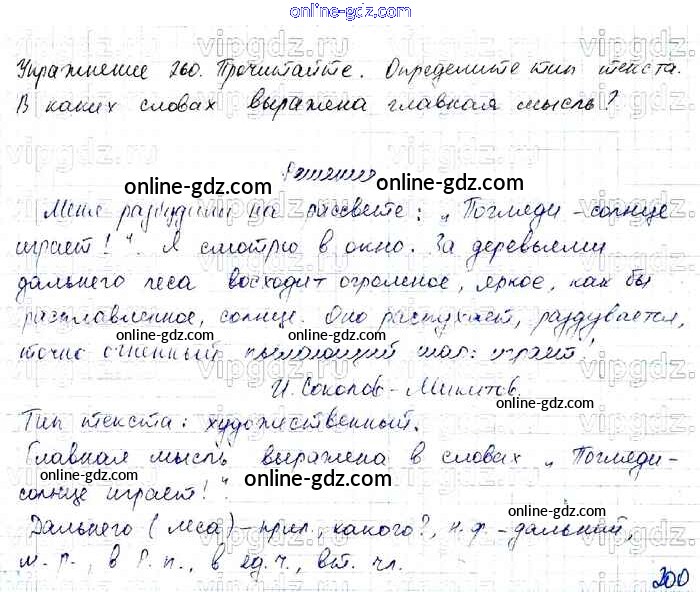 online-gdz.com
Упражнение 260. Прочитайте. Определите тип текста.
В каких словах выражена главная мысль?
Решение
online-gdz.com
Меня разбудили на рассвете: „Погляди - солнце
играет!". Я смотрю в окно. За деревьями
online-gdz.com
дальнего леса восходит огромное, яркое, как бы
расплавленное, солнце. Оно распухает, раздувается,
online-gdz.com
точно огненный пылающий шар: играет!
И. Соколов-Микитов
online-gdz.com
Тип текста: художественный.
Главная мысль выражена в словах „Погляди-
online-gdz.com
солнце играет!".
online-gdz.com
Дальнего (леса) - прил., какого?, н.ф. - дальний,
online-gdz.com
м.р., в Р.п., в ед.ч., вт. чл.
200